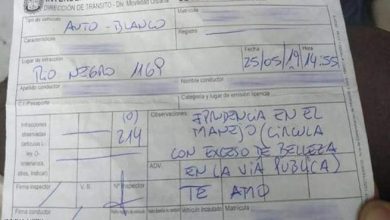 DIRECCIÓN DE TRÁNSITO - Div. Movilidad Urbana
Tipo de vehículo
AUTO - BLANCO
Características
Matrícula
Registro
Lugar de infracción
Fecha
Hora
RIO NEGRO 1169
25/05/19
14:55
Apellido conductor
Nombre conductor
C.I./Pasaporte
Categoría y lugar de emisión
Infracciones
observadas
(artículos)
(0)
214
Observaciones:
PRUDENCIA EN EL
MANEJO (CIRCULA
CON EXCESO DE BELLEZA
ADV.
EN LA VÍA PUBLICA)
TE AMO
Firma inspector
V. B.
Nº Inspector
Firma